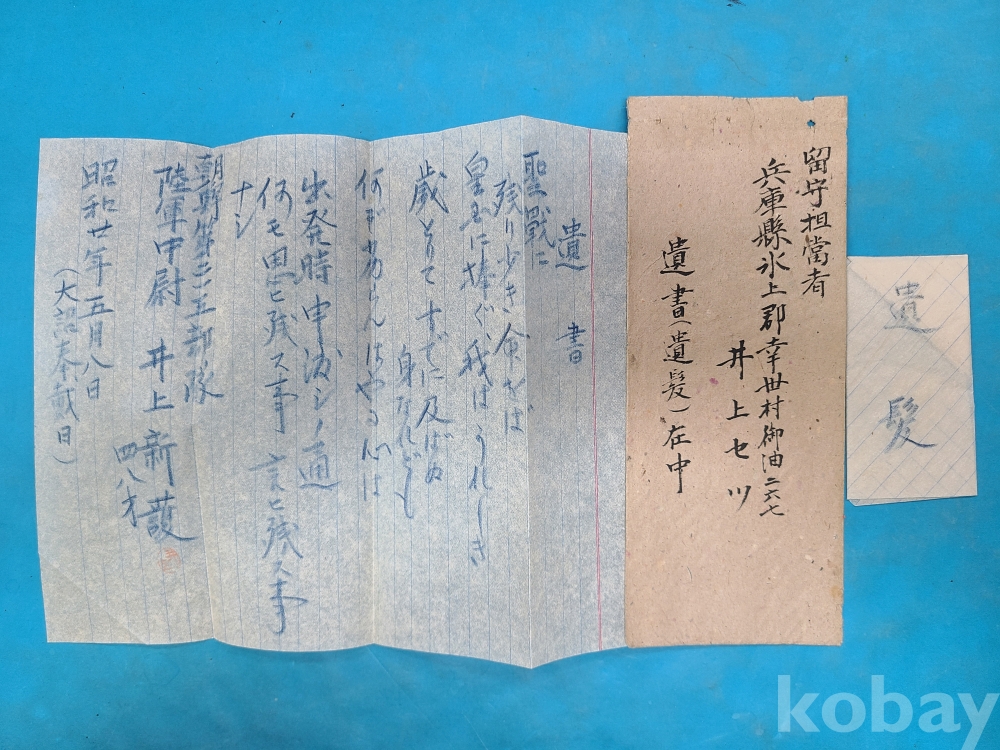 遺髪
留守担當者
兵庫縣氷上郡幸世村御油二六七
井上セツ
遺書(遺髪)在中
遺書
聖戰に
残り少き命をば
皇国に捧ぐ我はうれしき
歳とりてすでに及ばぬ
身なれども
何ぞ劣らんはやる心は
出発時申渡シノ通
何モ思ヒ残ス事 言ヒ残ス事
ナシ
朝鮮第二二五部隊
陸軍中尉 井上新護
四八才
昭和廿年五月八日
(大詔奉戴日)
kobay